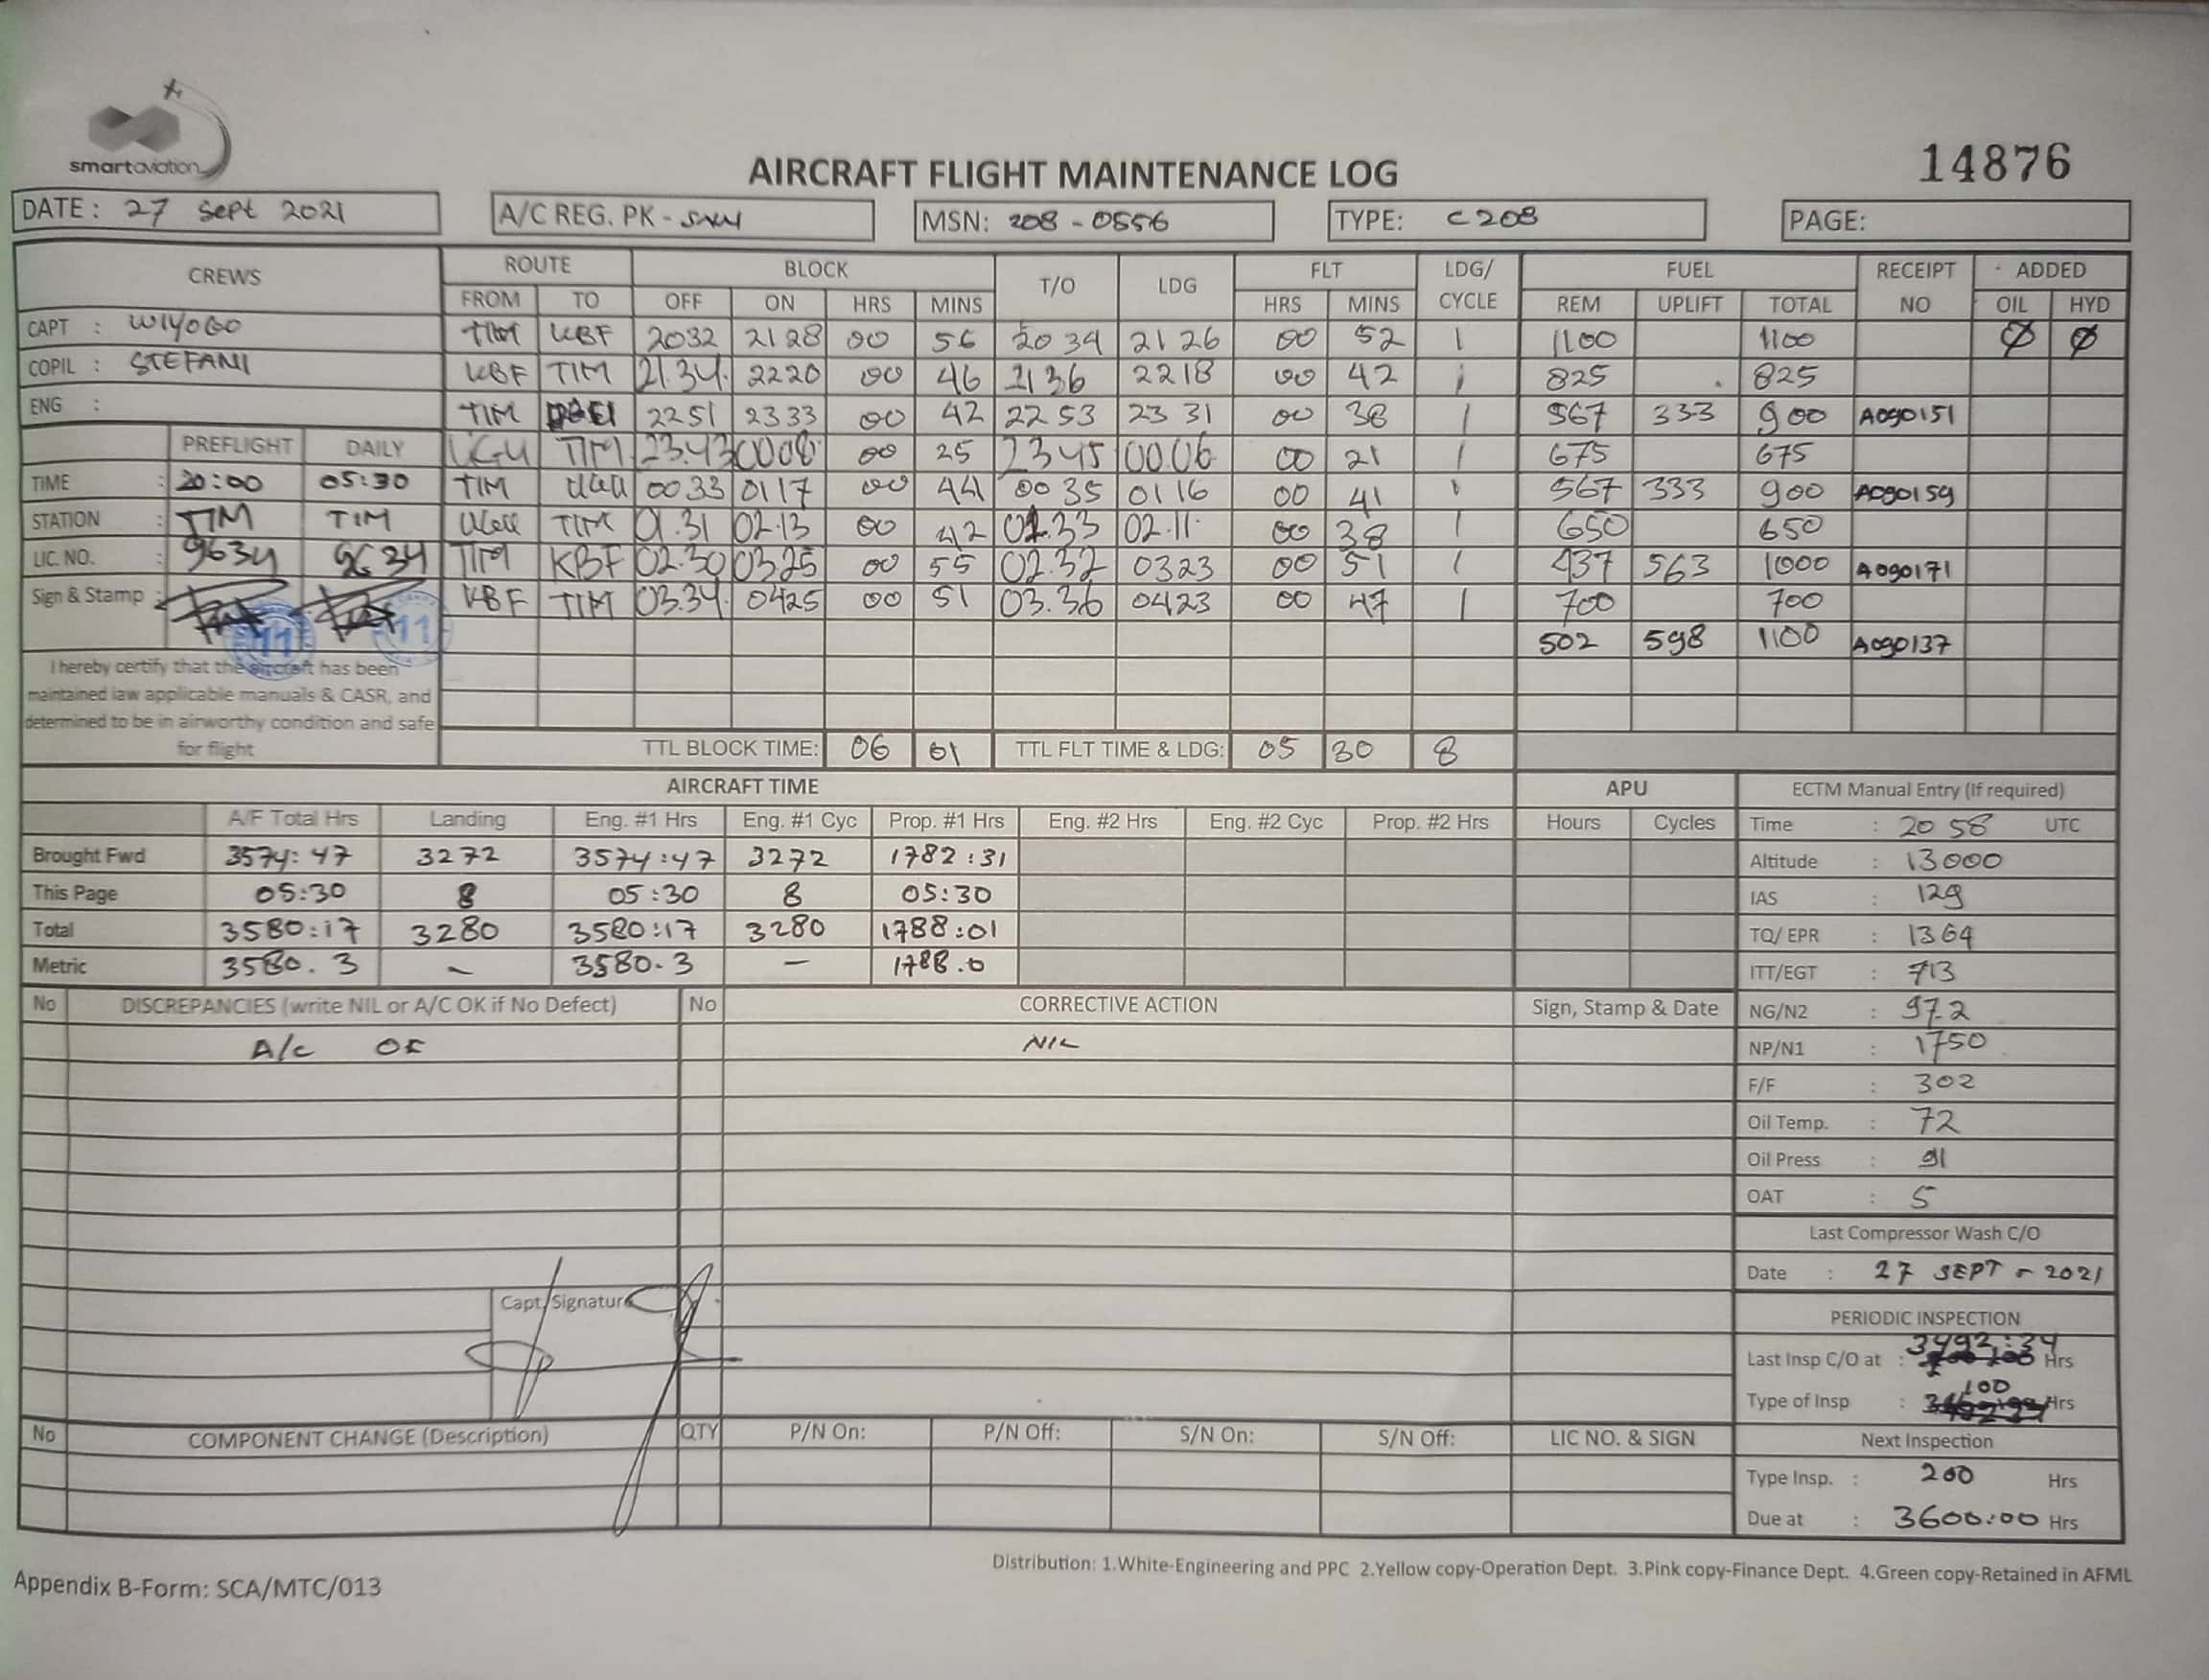 smartaviation
14876
AIRCRAFT FLIGHT MAINTENANCE LOG
DATE: 27 Sept 2021 A/C REG. PK - MSN: 208 - 0556 TYPE: C208 PAGE:
CREWS ROUTE BLOCK T/O LDG FLT LDG/ CYCLE FUEL RECEIPT NO ADDED
FROM TO OFF ON HRS MINS HRS MINS REM UPLIFT TOTAL OIL HYD
CAPT : WIYOGO TIM KBF 2032 2128 00 56 2034 2126 00 52 1 1100 1100 Ø Ø
COPIL : STEFANI KBF TIM 21.34. 2220 00 46 2136 2218 00 42 1 825 825
ENG : TIM 2251 2333 00 42 2253 2331 00 38 1 567 333 900 A090151
PREFLIGHT DAILY TIM 23.43 0008 00 25 2345 0006 00 21 1 675 675
TIME : 20:00 05:30 TIM 0033 0117 00 44 0035 0116 00 41 1 567 333 900 A090159
STATION : TIM TIM TIM 01.31 02.13 00 42 01.33 02.11 00 38 1 650 650
LIC. NO. : 9634 9634 TIM KBF 02.30 0325 00 55 02.32 0323 00 51 1 437 563 1000 A090171
Sign & Stamp : KBF TIM 03.34. 0425 00 51 03.36 0423 00 47 1 700 700
11 11
502 598 1100 A090137
I hereby certify that the aircraft has been
maintained law applicable manuals & CASR, and
determined to be in airworthy condition and safe
for flight
TTL BLOCK TIME: 06 01 TTL FLT TIME & LDG: 05 30 8
AIRCRAFT TIME APU ECTM Manual Entry (If required)
A/F Total Hrs Landing Eng. #1 Hrs Eng. #1 Cyc Prop. #1 Hrs Eng. #2 Hrs Eng. #2 Cyc Prop. #2 Hrs Hours Cycles Time : 20 58 UTC
Brought Fwd 3574:47 3272 3574:47 3272 1782:31 Altitude : 13000
This Page 05:30 8 05:30 8 05:30 IAS : 129
Total 3580:17 3280 3580:17 3280 1788:01 TQ/ EPR : 1364
Metric 3580.3 - 3580.3 - 1788.0 ITT/EGT : 713
No DISCREPANCIES (write NIL or A/C OK if No Defect) No CORRECTIVE ACTION Sign, Stamp & Date NG/N2 : 97.2
A/C OK NIL NP/N1 : 1750
F/F : 302
Oil Temp. : 72
Oil Press : 91
OAT : 5
Last Compressor Wash C/O
Date : 27 SEPT - 2021
Capt. Signature
PERIODIC INSPECTION
Last Insp C/O at : 3492:34 Hrs
Type of Insp : 100 Hrs
No COMPONENT CHANGE (Description) QTY P/N On: P/N Off: S/N On: S/N Off: LIC NO. & SIGN Next Inspection
Type Insp. : 200 Hrs
Due at : 3600:00 Hrs
Distribution: 1.White-Engineering and PPC 2.Yellow copy-Operation Dept. 3.Pink copy-Finance Dept. 4.Green copy-Retained in AFML
Appendix B-Form: SCA/MTC/013